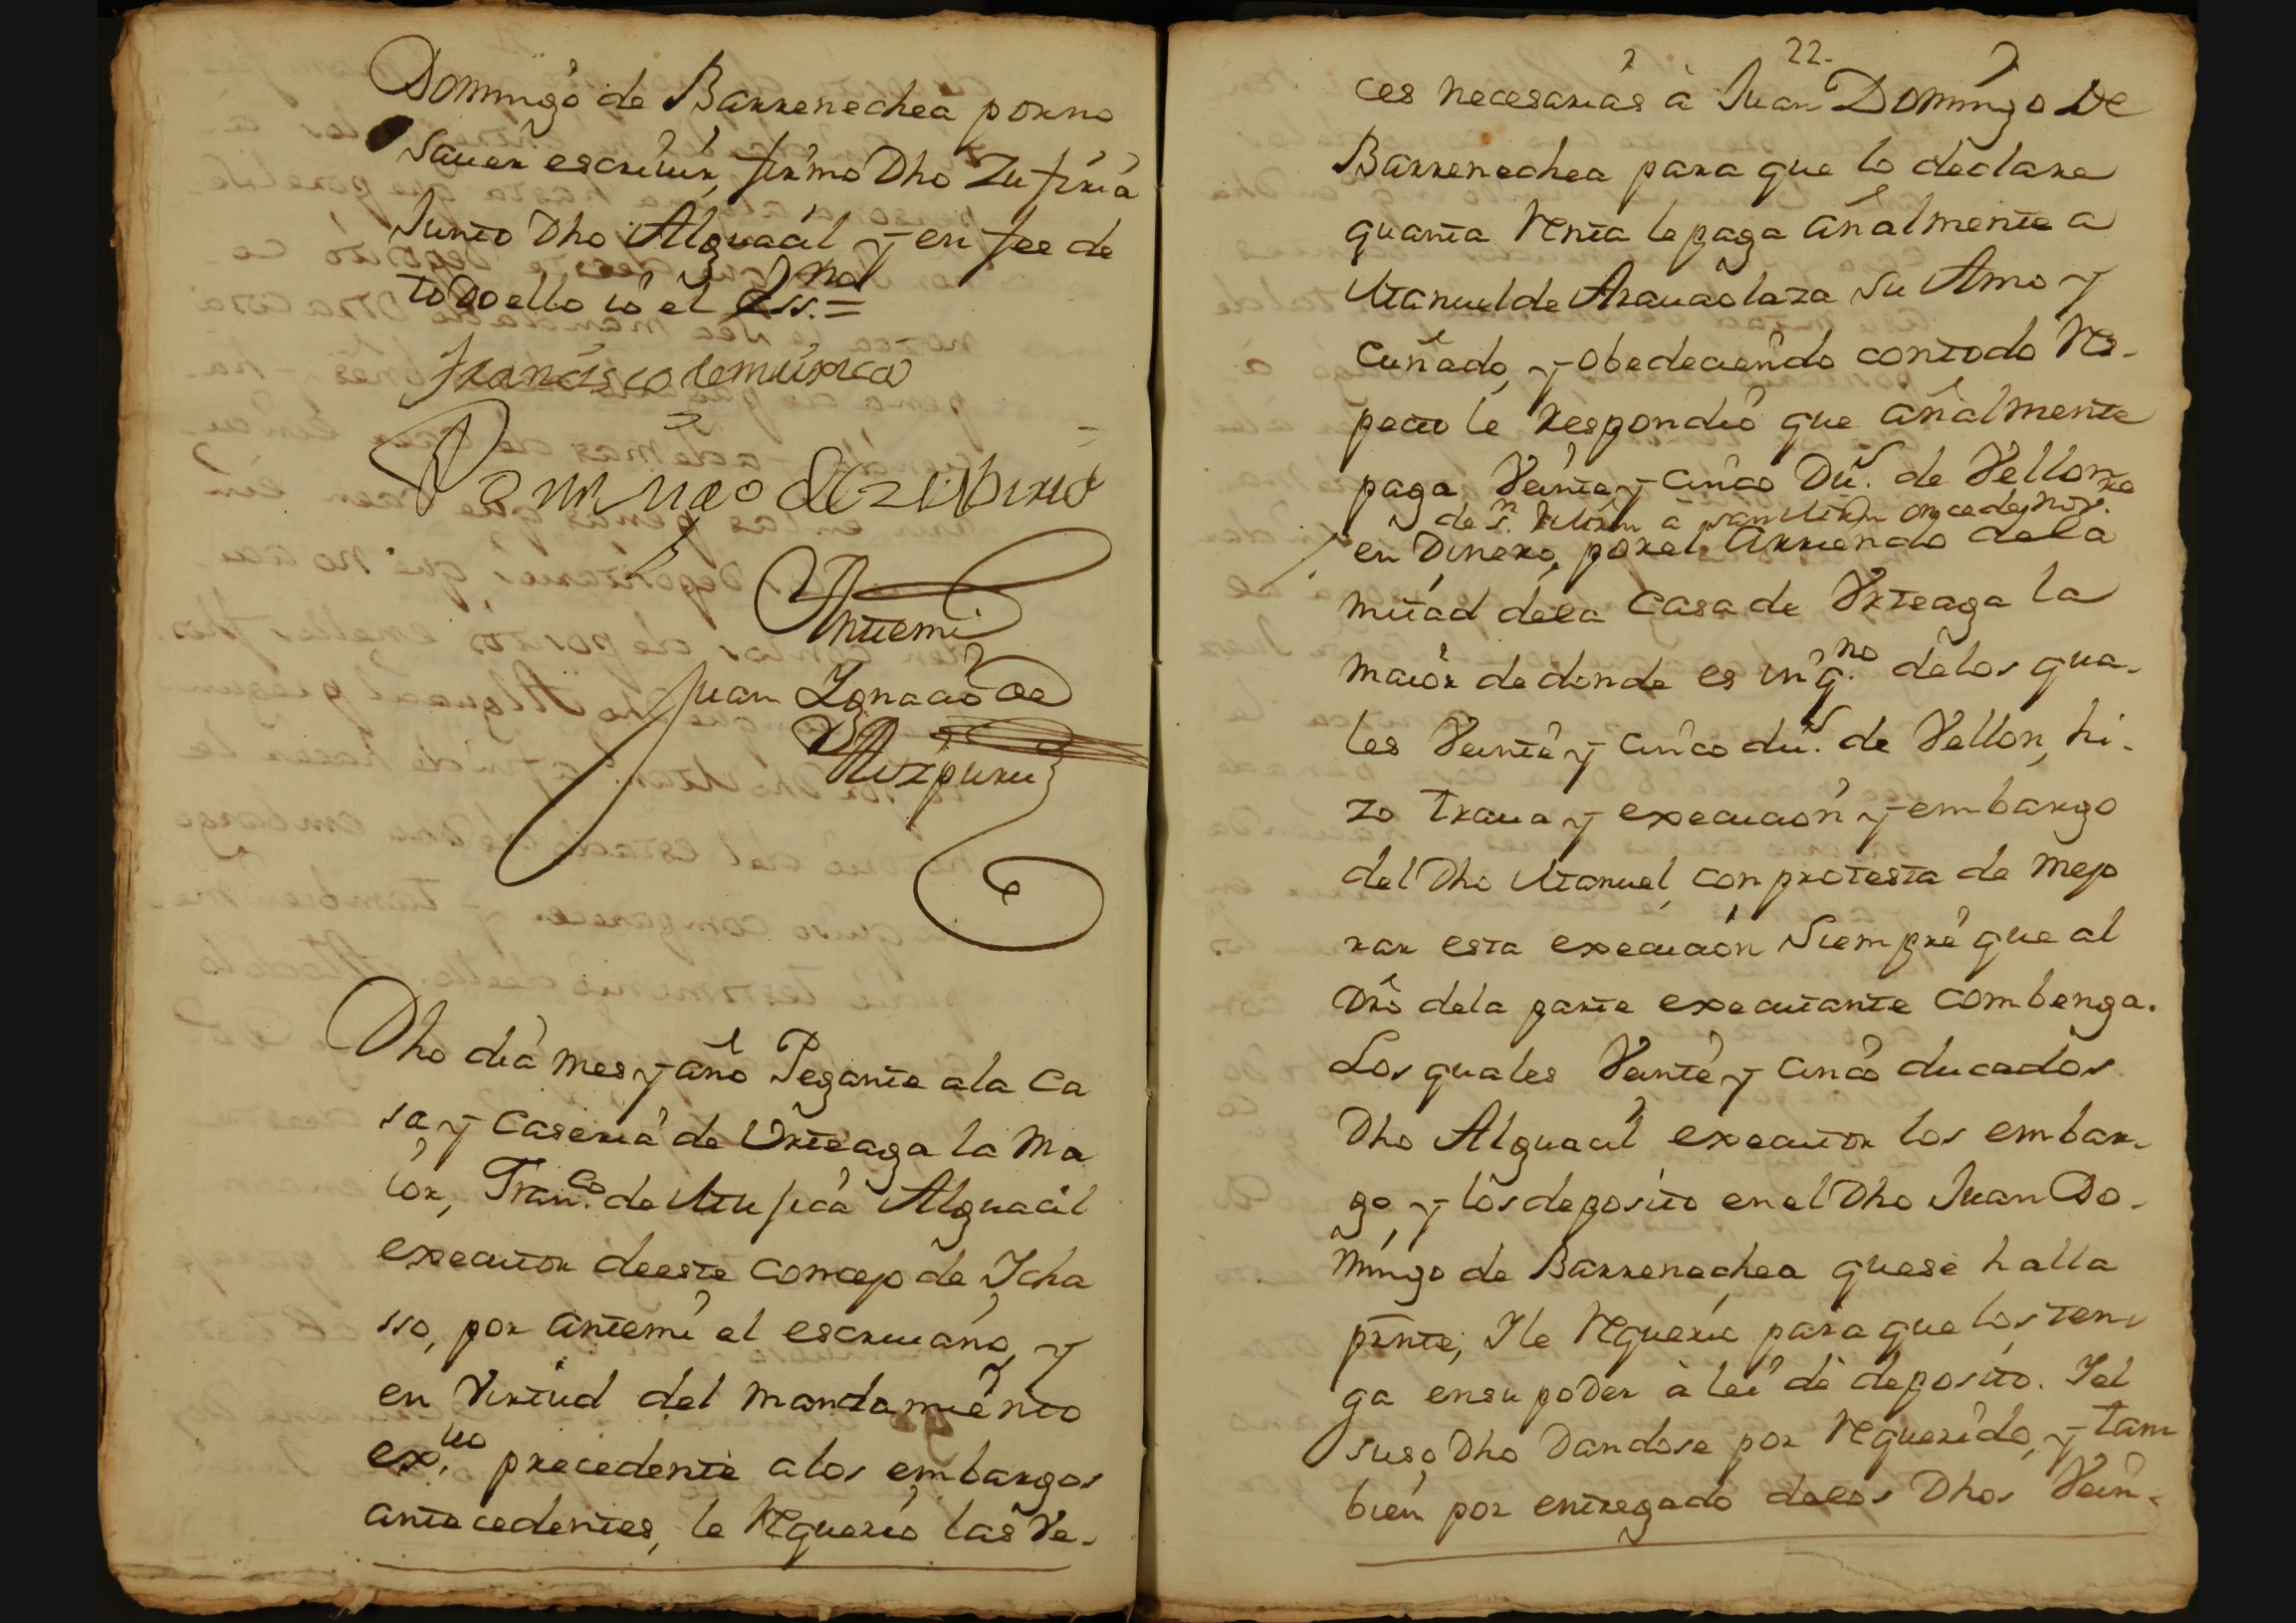 Domingo de Barrenechea por no
sauer escriuir, firmo Dho Zufiria
Junto Dho Alguacil y en fee de
todo ello io el Ess.no =
Francisco de muxica
Domingo de zubiria
Antemi
Juan Ignacio de
Aizpuru
Dho dia mes y año Pegante a la Ca
sa y Caseria de Urteaga la Ma
ior, Fran.co de Muxica Alguacil
executor de este Concejo de Icha
sso, por antemi el escriuano, y
en Virtud del mandamiento
ex.uo precedente a los embargos
antecedentes, le requerio las Ve-
22.
ces necesarias à Juan Domingo de
Barrenechea para que lo declare
quanta renta le paga añalmente a
Manuel de Arauaolaza su Amo y
Cuñado, y obedeciendo con todo res-
pecto le respondio que añalmente
paga Veinte y cinco Du.s de Vellon
de S.n Mrn a san Mrn
en Dinero, por el Arriendo de la
mitad de la Casa de Vrteaga la
maior de donde es inq.no de los qua-
les Veinte y cinco du.s de Vellon, hi-
zo traua y execucion y embargo
del Dho Manuel, con protesta de mejo
rar esta execucion siempre que al
Dro de la parte executante combenga.
Los quales Veinte y cinco ducados
Dho Alguacil executor los embar-
go, y los deposito en el Dho Juan Do-
mingo de Barrenechea que se halla
prnte, I le requerio para que los ten-
ga en su poder à lei de deposito. I el
suso Dho dandose por requerido, y tam
bien por entregado de los Dhos Vein-